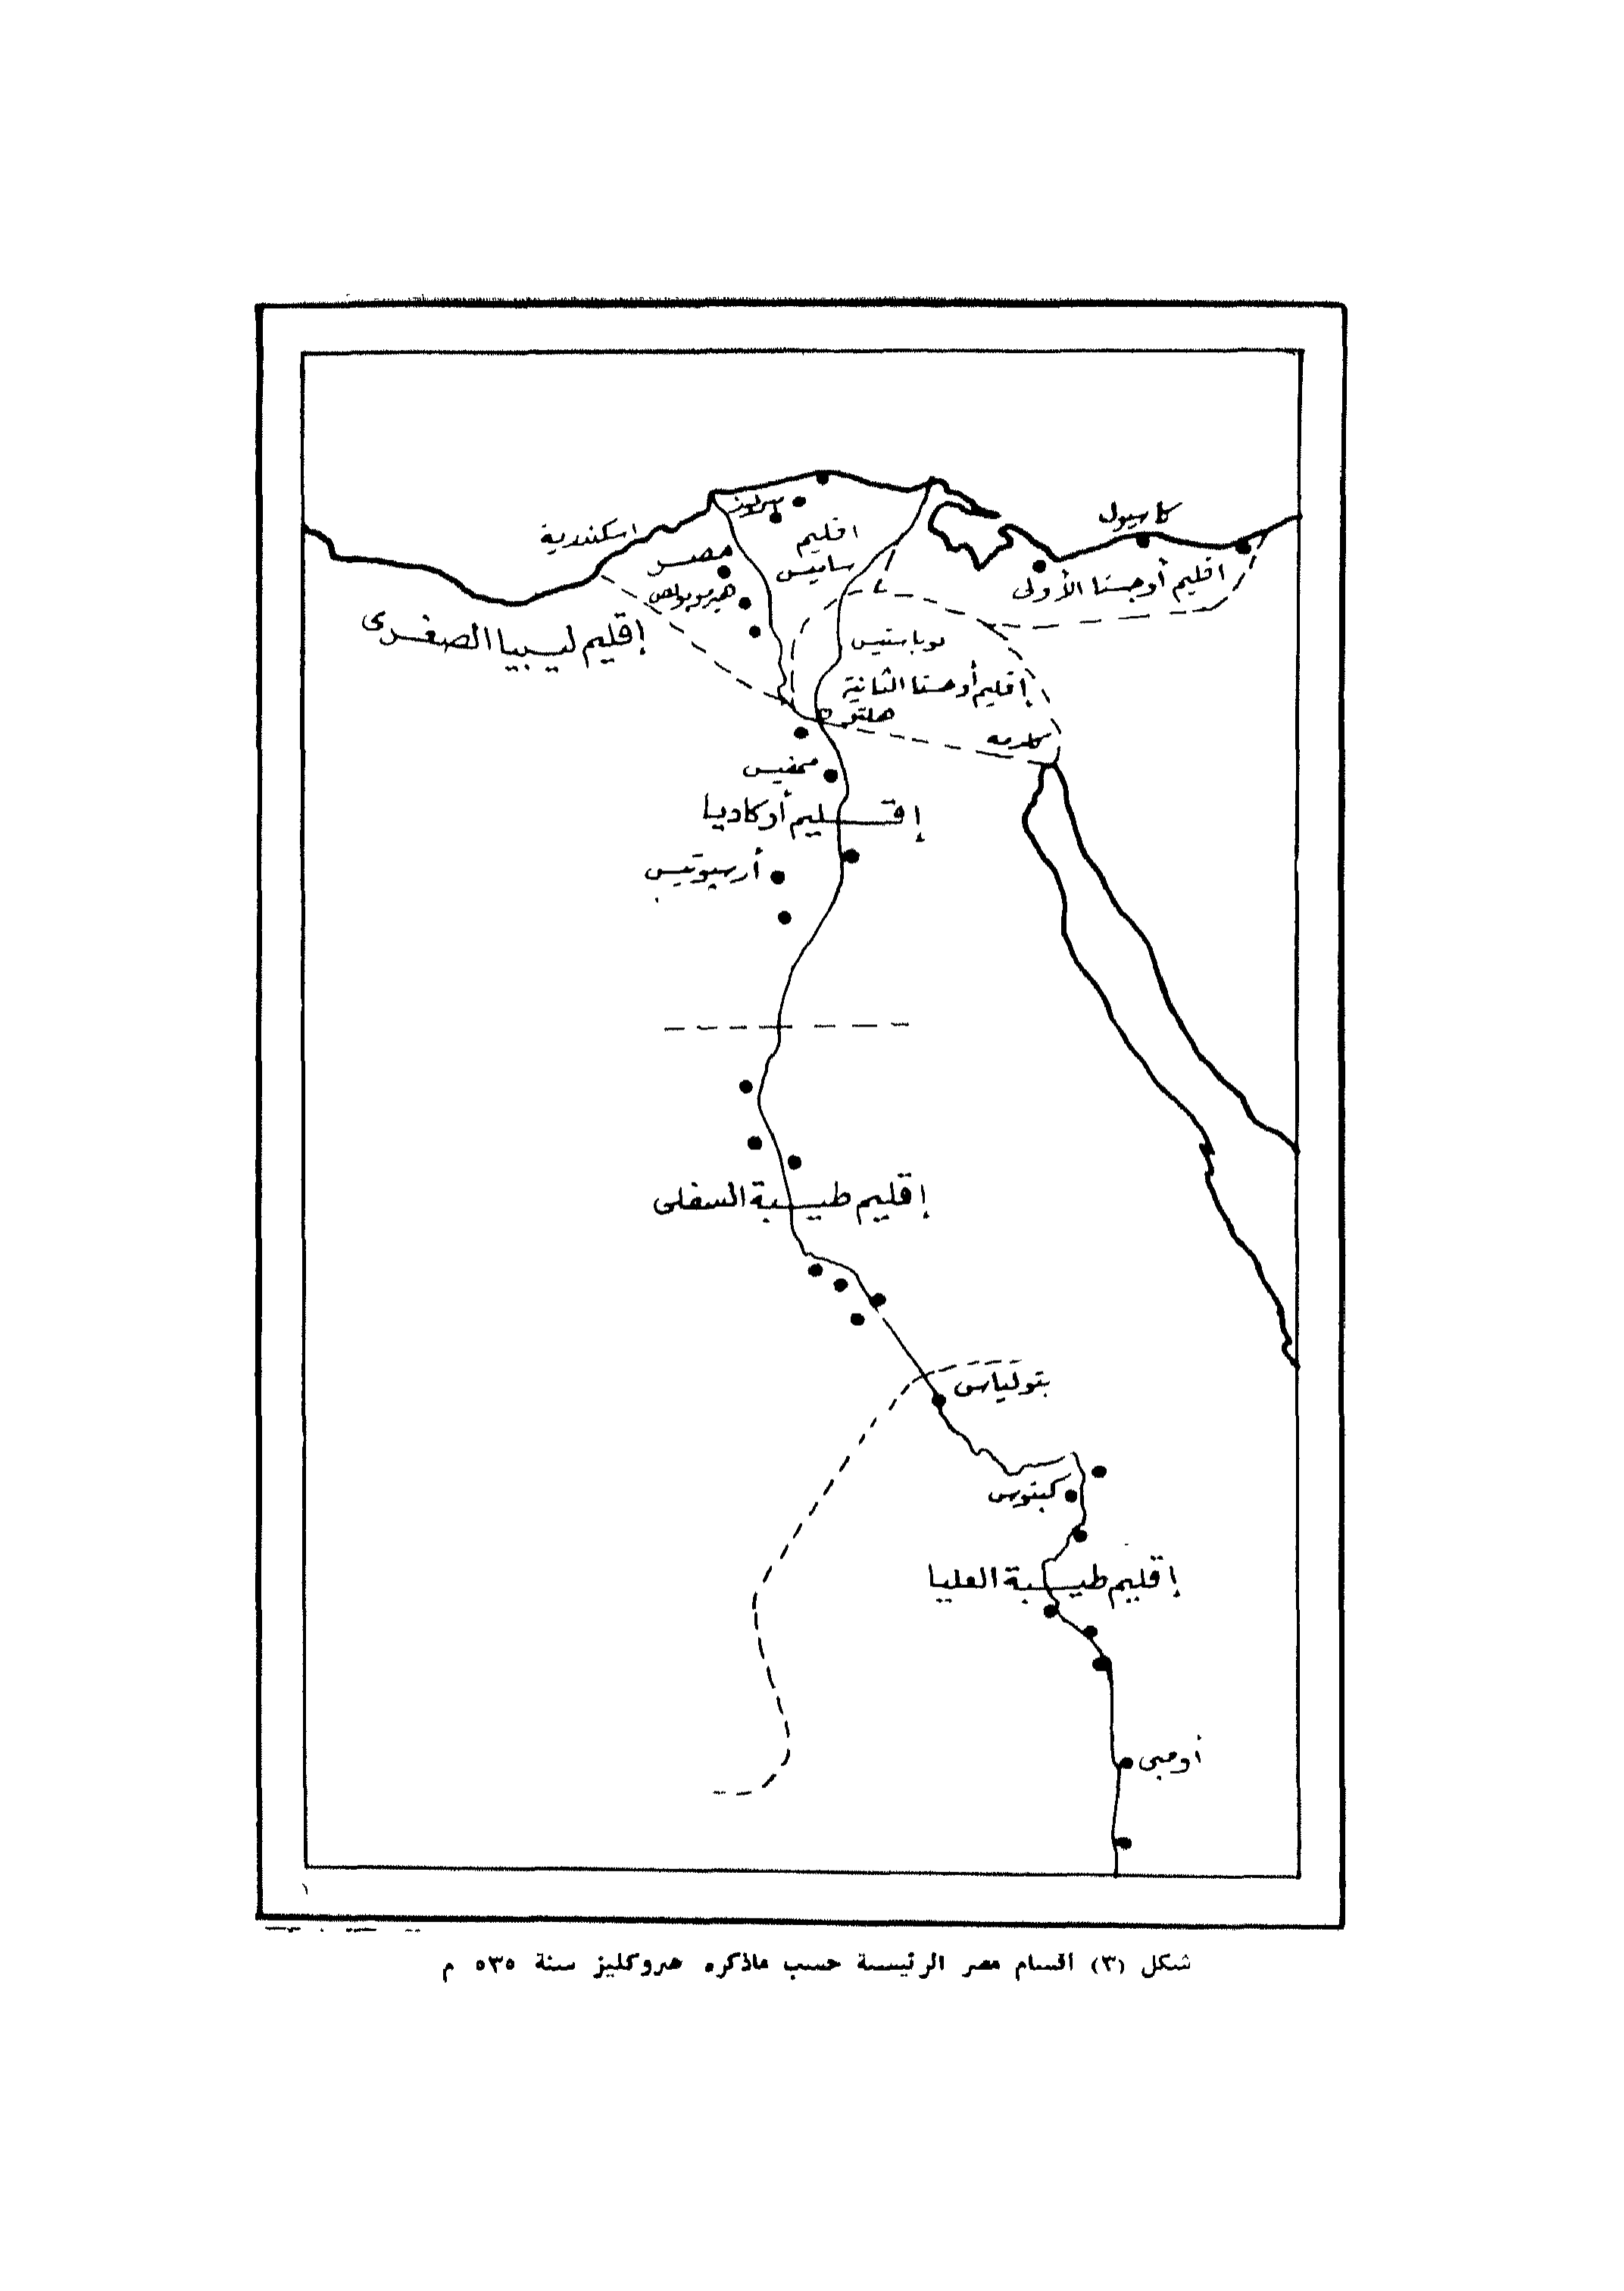 كاسيول
اسكندرية
اقليم
سايس
مصر
هيرموبولس
اقليم أوجستا الأولى
إقليم ليبيا الصغرى
بوباستيس
إقليم أوجستا الثانية
ممفيس
إقليم أركاديا
أرسيوتيس
إقليم طيبة السفلى
بتولياس
كبتوس
إقليم طيبة العليا
أومبى
شكل (٣) اقسام مصر الرئيسة حسب ماذكره هروكليز سنة ٥٣٥ م